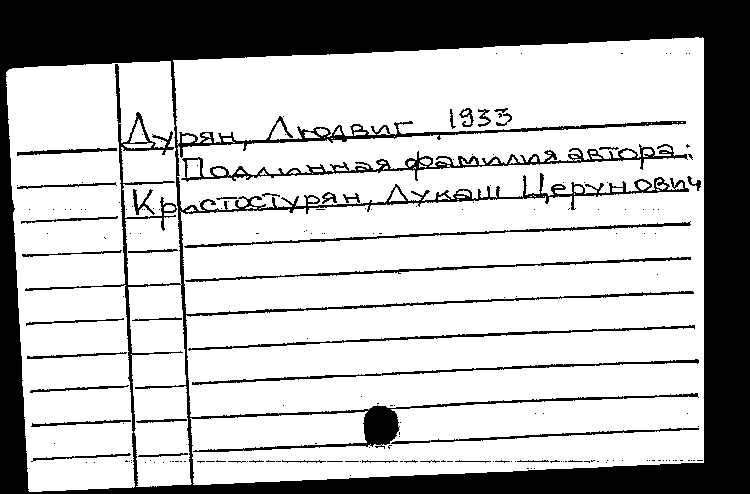 Дурян, Людвиг, 1933
Подлинная фамилия автора:
Кристостурян, Лукаш Церунович